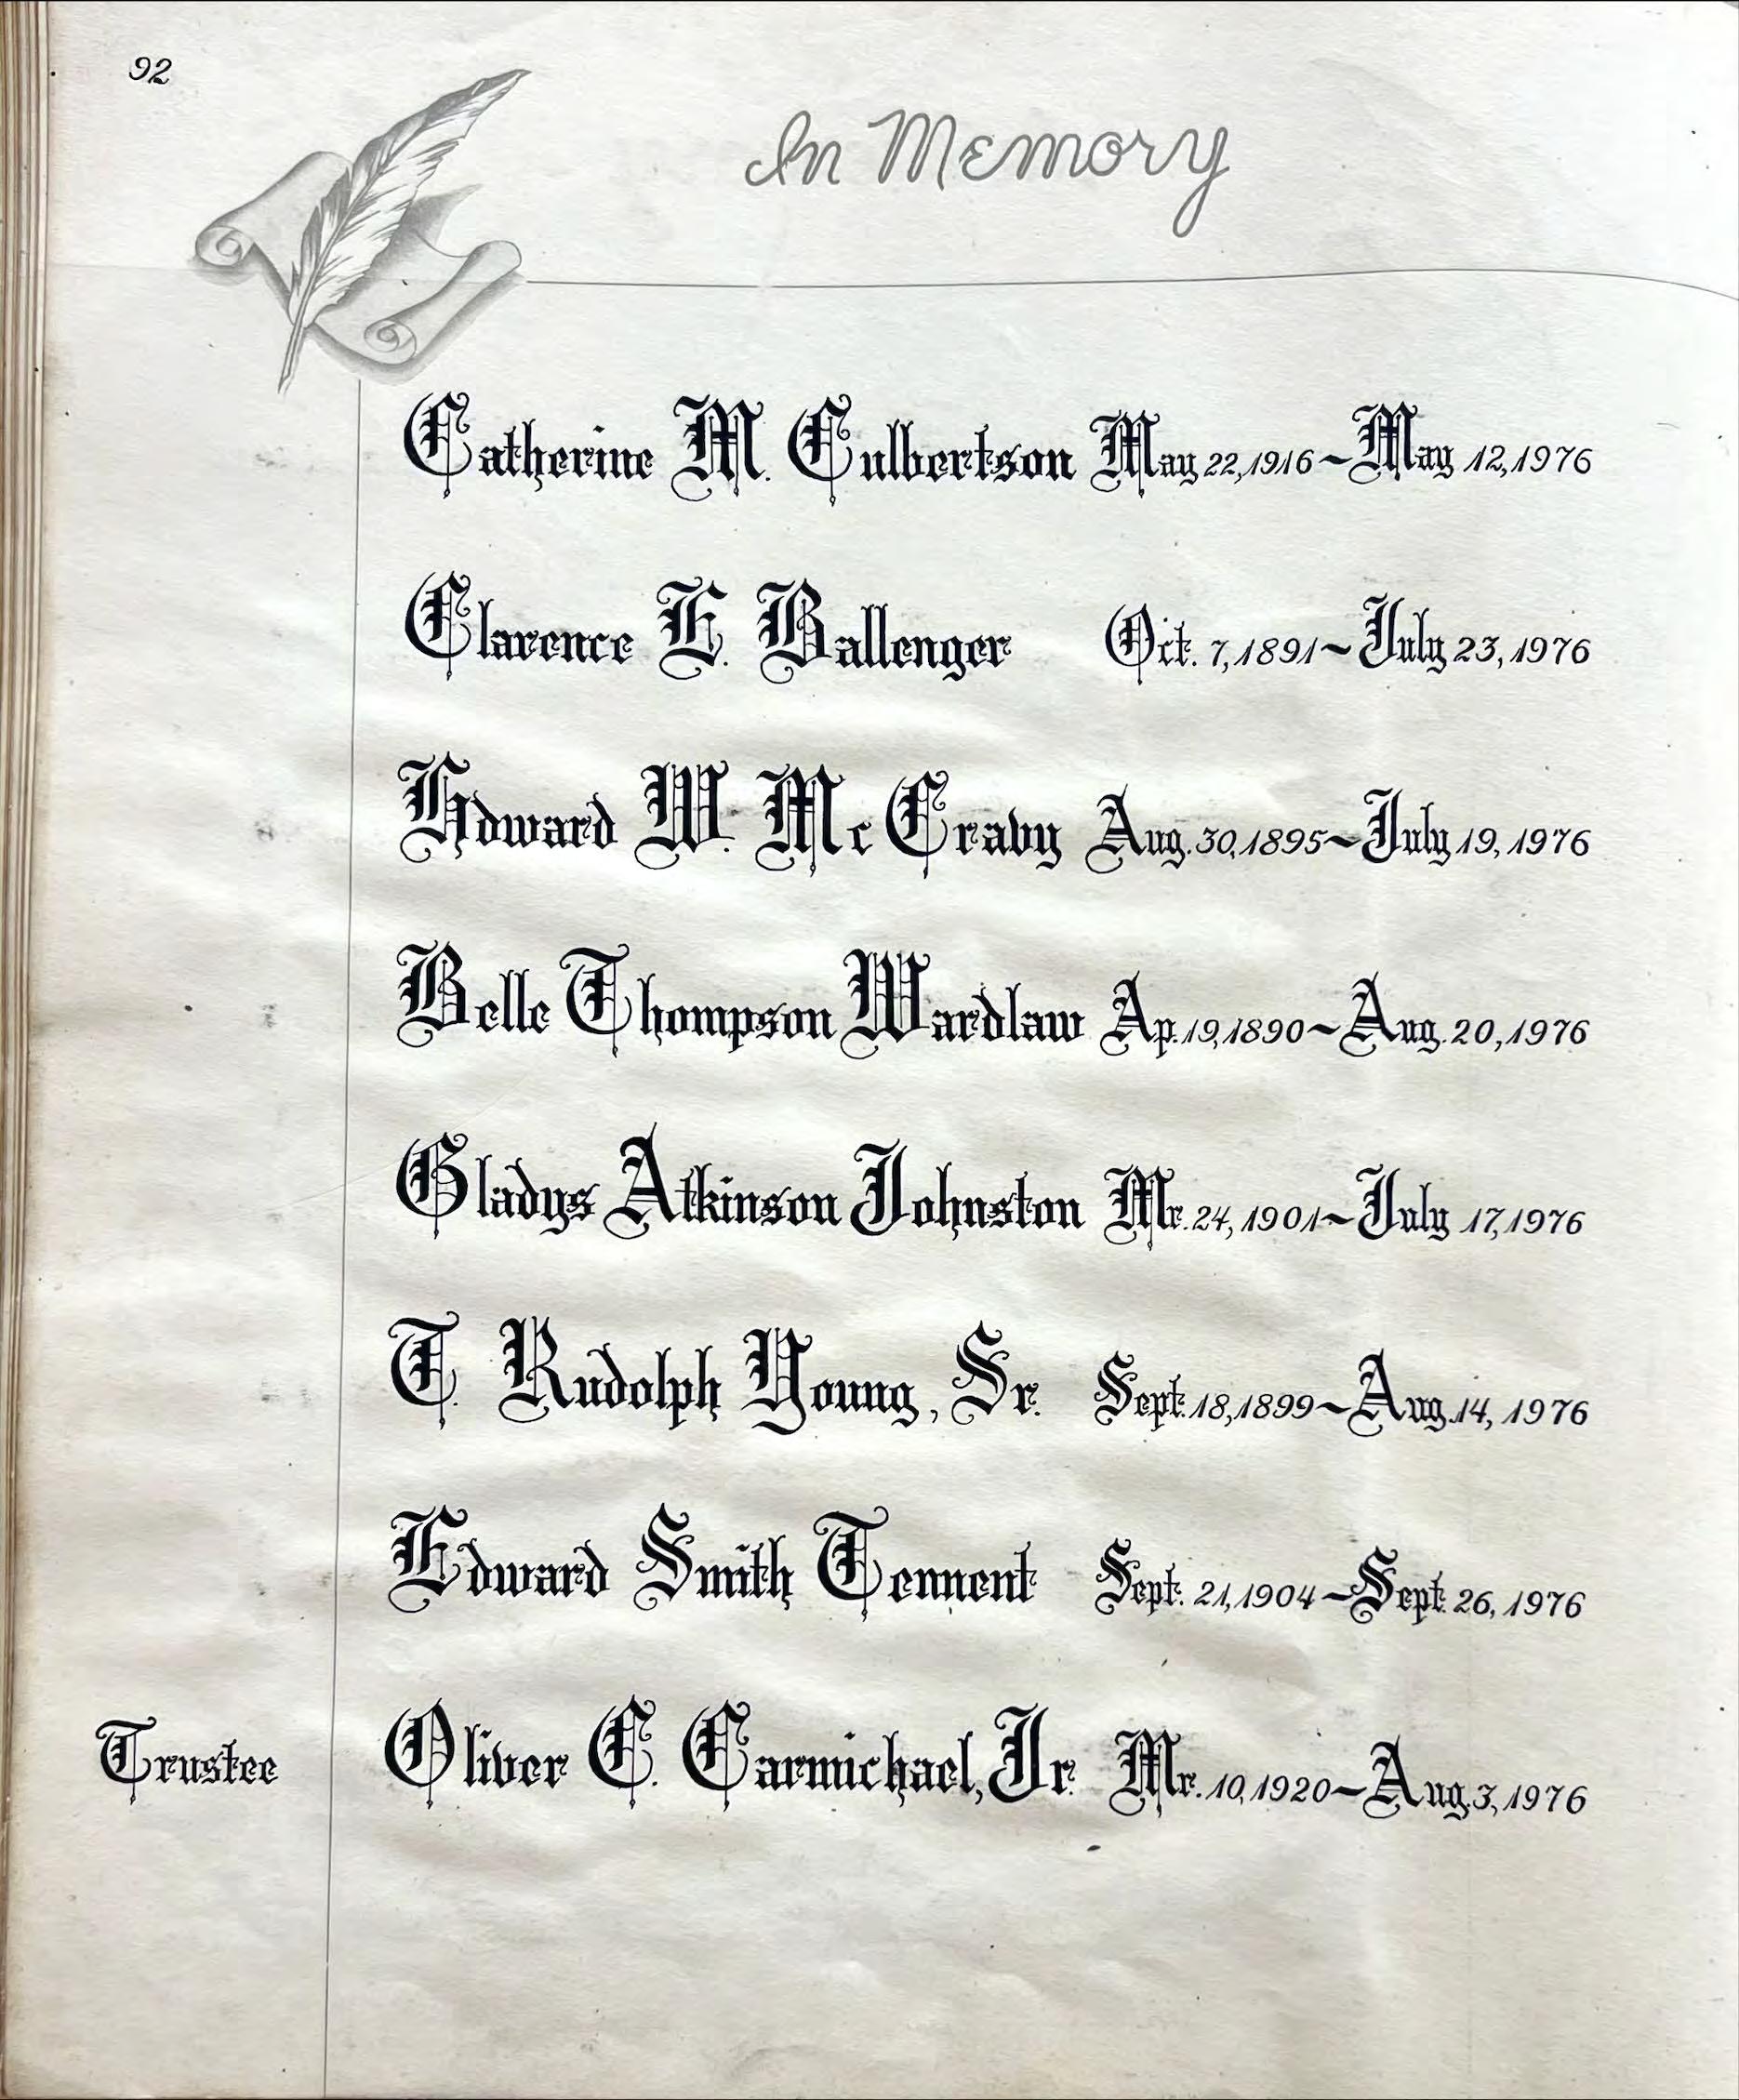 92
In Memory
Catherine M. Culbertson May 22, 1916 ~ May 12, 1976
Clarence E. Ballenger Oct. 7, 1891 ~ July 23, 1976
Edward W. McCravy Aug. 30, 1895 ~ July 19, 1976
Belle Thompson Wardlaw Ap. 19, 1890 ~ Aug. 20, 1976
Gladys Atkinson Johnston Mr. 24, 1901 ~ July 17, 1976
T. Rudolph Young, Sr. Sept. 18, 1899 ~ Aug. 14, 1976
Edward Smith Tennent Sept. 21, 1904 ~ Sept. 26, 1976
Trustee Oliver C. Carmichael, Jr. Mr. 10, 1920 ~ Aug. 3, 1976